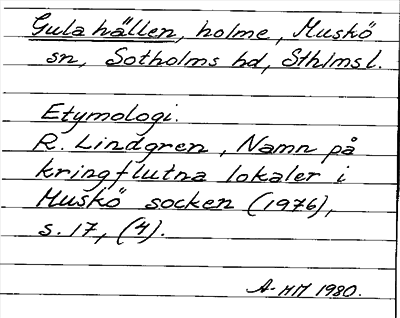 Gula hällen, holme, Muskö
sn, Sotholms hd, Sthlmsl.
Etymologi.
R. Lindgren, Namn på
kringflutna lokaler i
Muskö socken (1976),
s. 17, (4).
A-MM 1980.